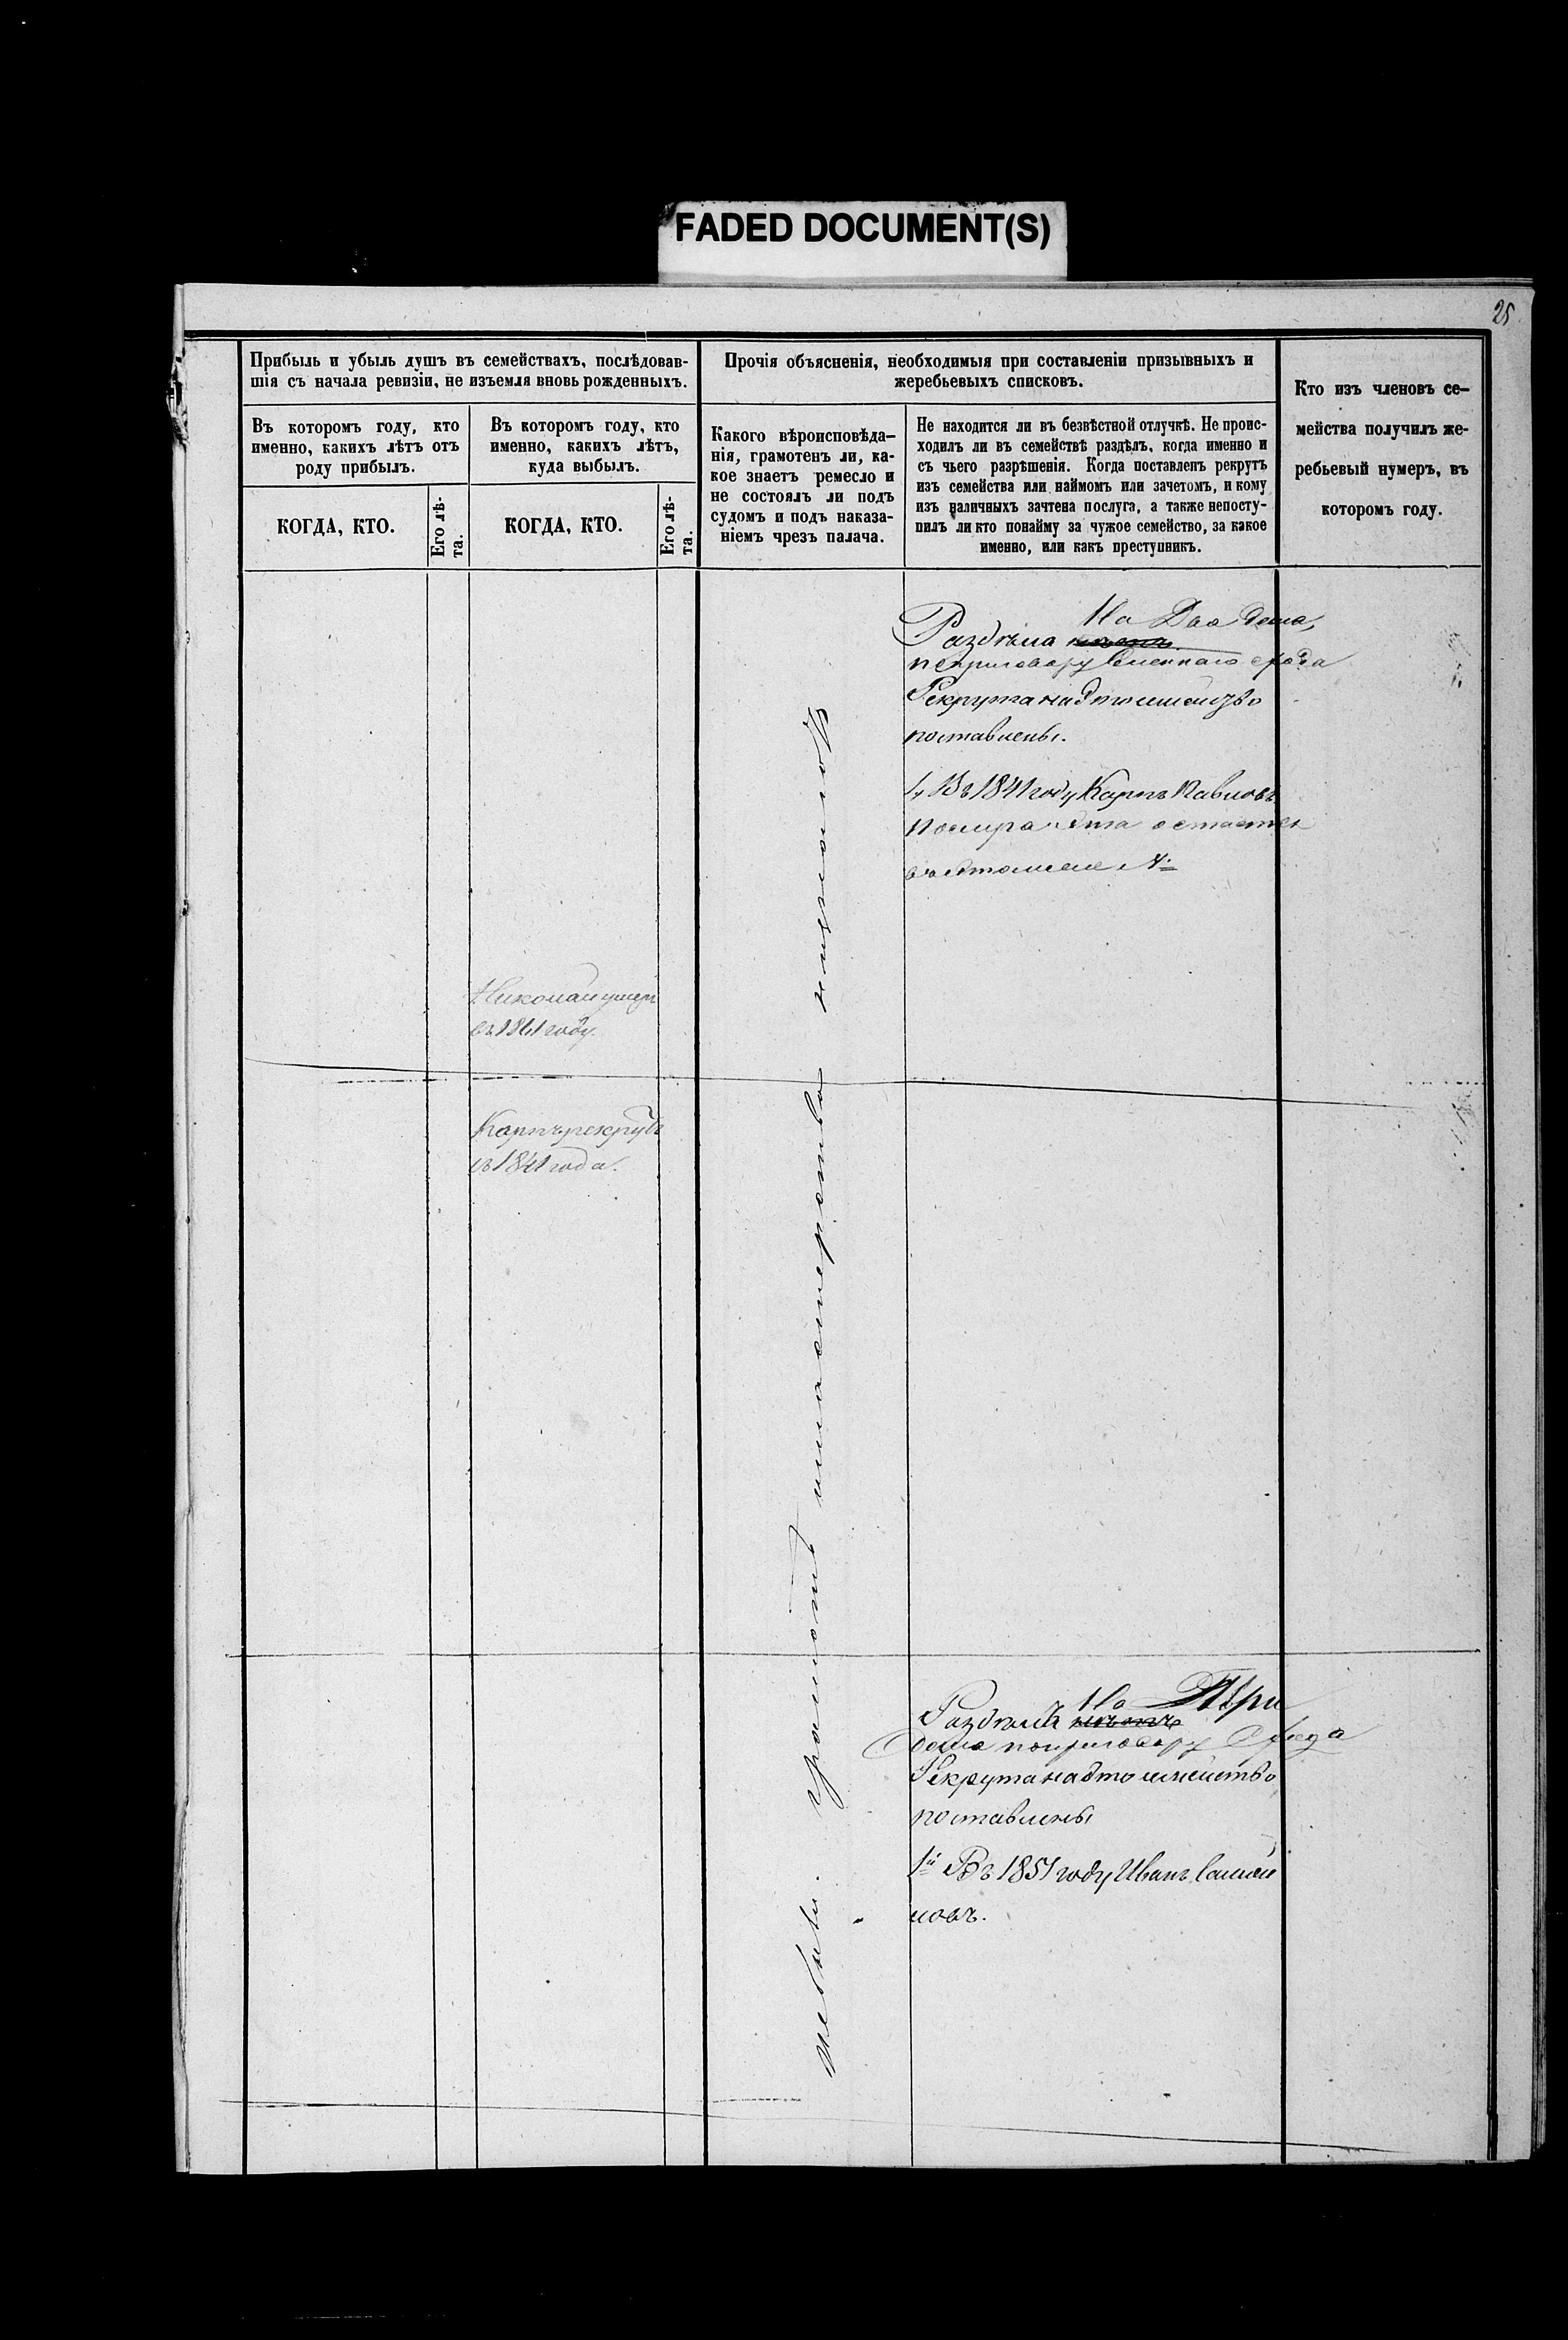 FADED DOCUMENT(S)
25
Прибыль и убыль душъ въ семействахъ, послѣдовав-
шія съ начала ревизіи, не изъемля вновь рожденныхъ.
Въ которомъ году, кто
именно, какихъ лѣтъ отъ
роду прибылъ.
КОГДА, КТО.
Его лѣ-
та.
Въ которомъ году, кто
именно, какихъ лѣтъ,
куда выбылъ.
КОГДА, КТО.
Его лѣ-
та.
Прочія объясненія, необходимыя при составленіи призывныхъ и
жеребьевыхъ списковъ.
Какого вѣроисповѣда-
нія, грамотенъ ли, ка-
кое знаетъ ремесло и
не состоялъ ли подъ
судомъ и подъ наказа-
ніемъ чрезъ палача.
Не находится ли въ безвѣстной отлучкѣ. Не проис-
ходилъ ли въ семействѣ раздѣлъ, когда именно и
съ чьего разрѣшенія. Когда поставленъ рекрутъ
изъ семейства или наймомъ или зачетомъ, и кому
изъ наличныхъ зачтена послуга, а также непосту-
пилъ ли кто понайму за чужое семейство, за какое
именно, или какъ преступникъ.
Кто изъ членовъ се-
мейства получилъ же-
ребьевый нумеръ, въ
которомъ году.
На Два дома,
Раздѣла
поприговору схода
Рекрута на это
поставлены.
1, Въ 1841 году Карпъ Павловъ
остается
въ этом №
Николай умеръ
въ 1861 году.
Карпъ рекрутъ
съ 1841 года.
грамотѣ мастерства
На Три
Раздѣлъ
дома поприговору Схода
Рекрута на это семейство
поставлены
1й Въ 1851 году Иванъ
ловъ.